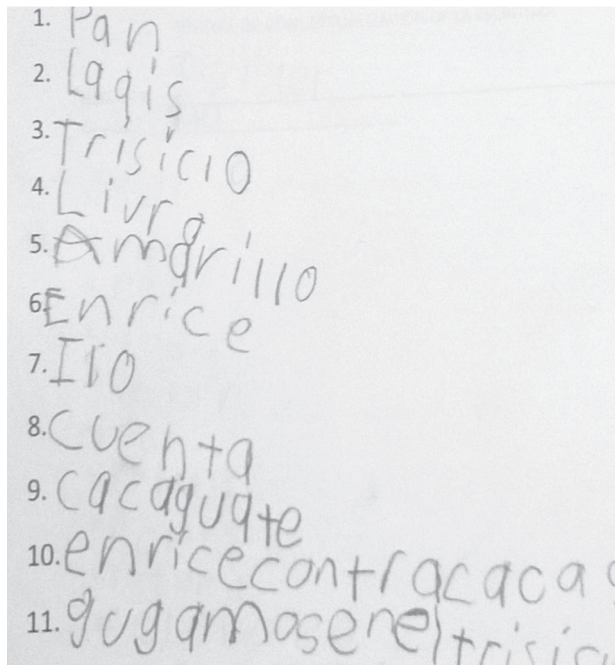 1. Pan
2. Lagis
3. Trisicio
4. Livra
5. Amarillo
6. Enrice
7. Iro
8. cuenta
9. cacaguate
10. enricecontracaca
11. gugamosenel trisic